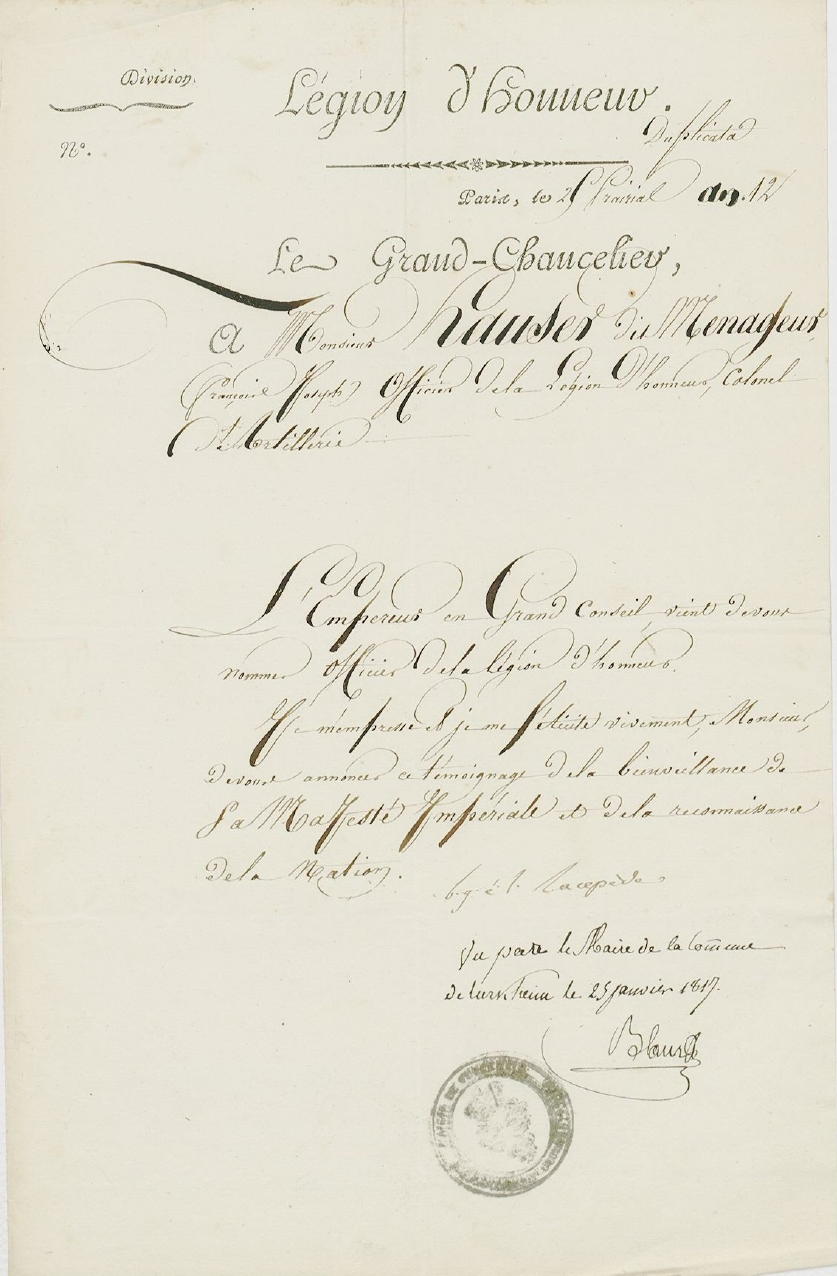 Division.
Légion d'honneur.
N°.
Duplicata
Paris, le 25 Prairial an. 12
Le Grand-Chancelier,
A Monsieur hauser dit Menageur,
françois Joseph Officier de la Légion D'honneur, Colonel
D'Artillerie
L'Empereur en Grand Conseil, vient de vous
nommer Officier de la légion d'honneur.
Je m'empresse et je me félicite vivement, Monsieur,
de vous annoncer ce témoignage de la bienveillance de
Sa Majesté Impériale et de la reconnaissance
de la Nation.
b. g. é. l. Lacepède
Vu par le Maire de la Commune
de turkheim le 25 janvier 1817.